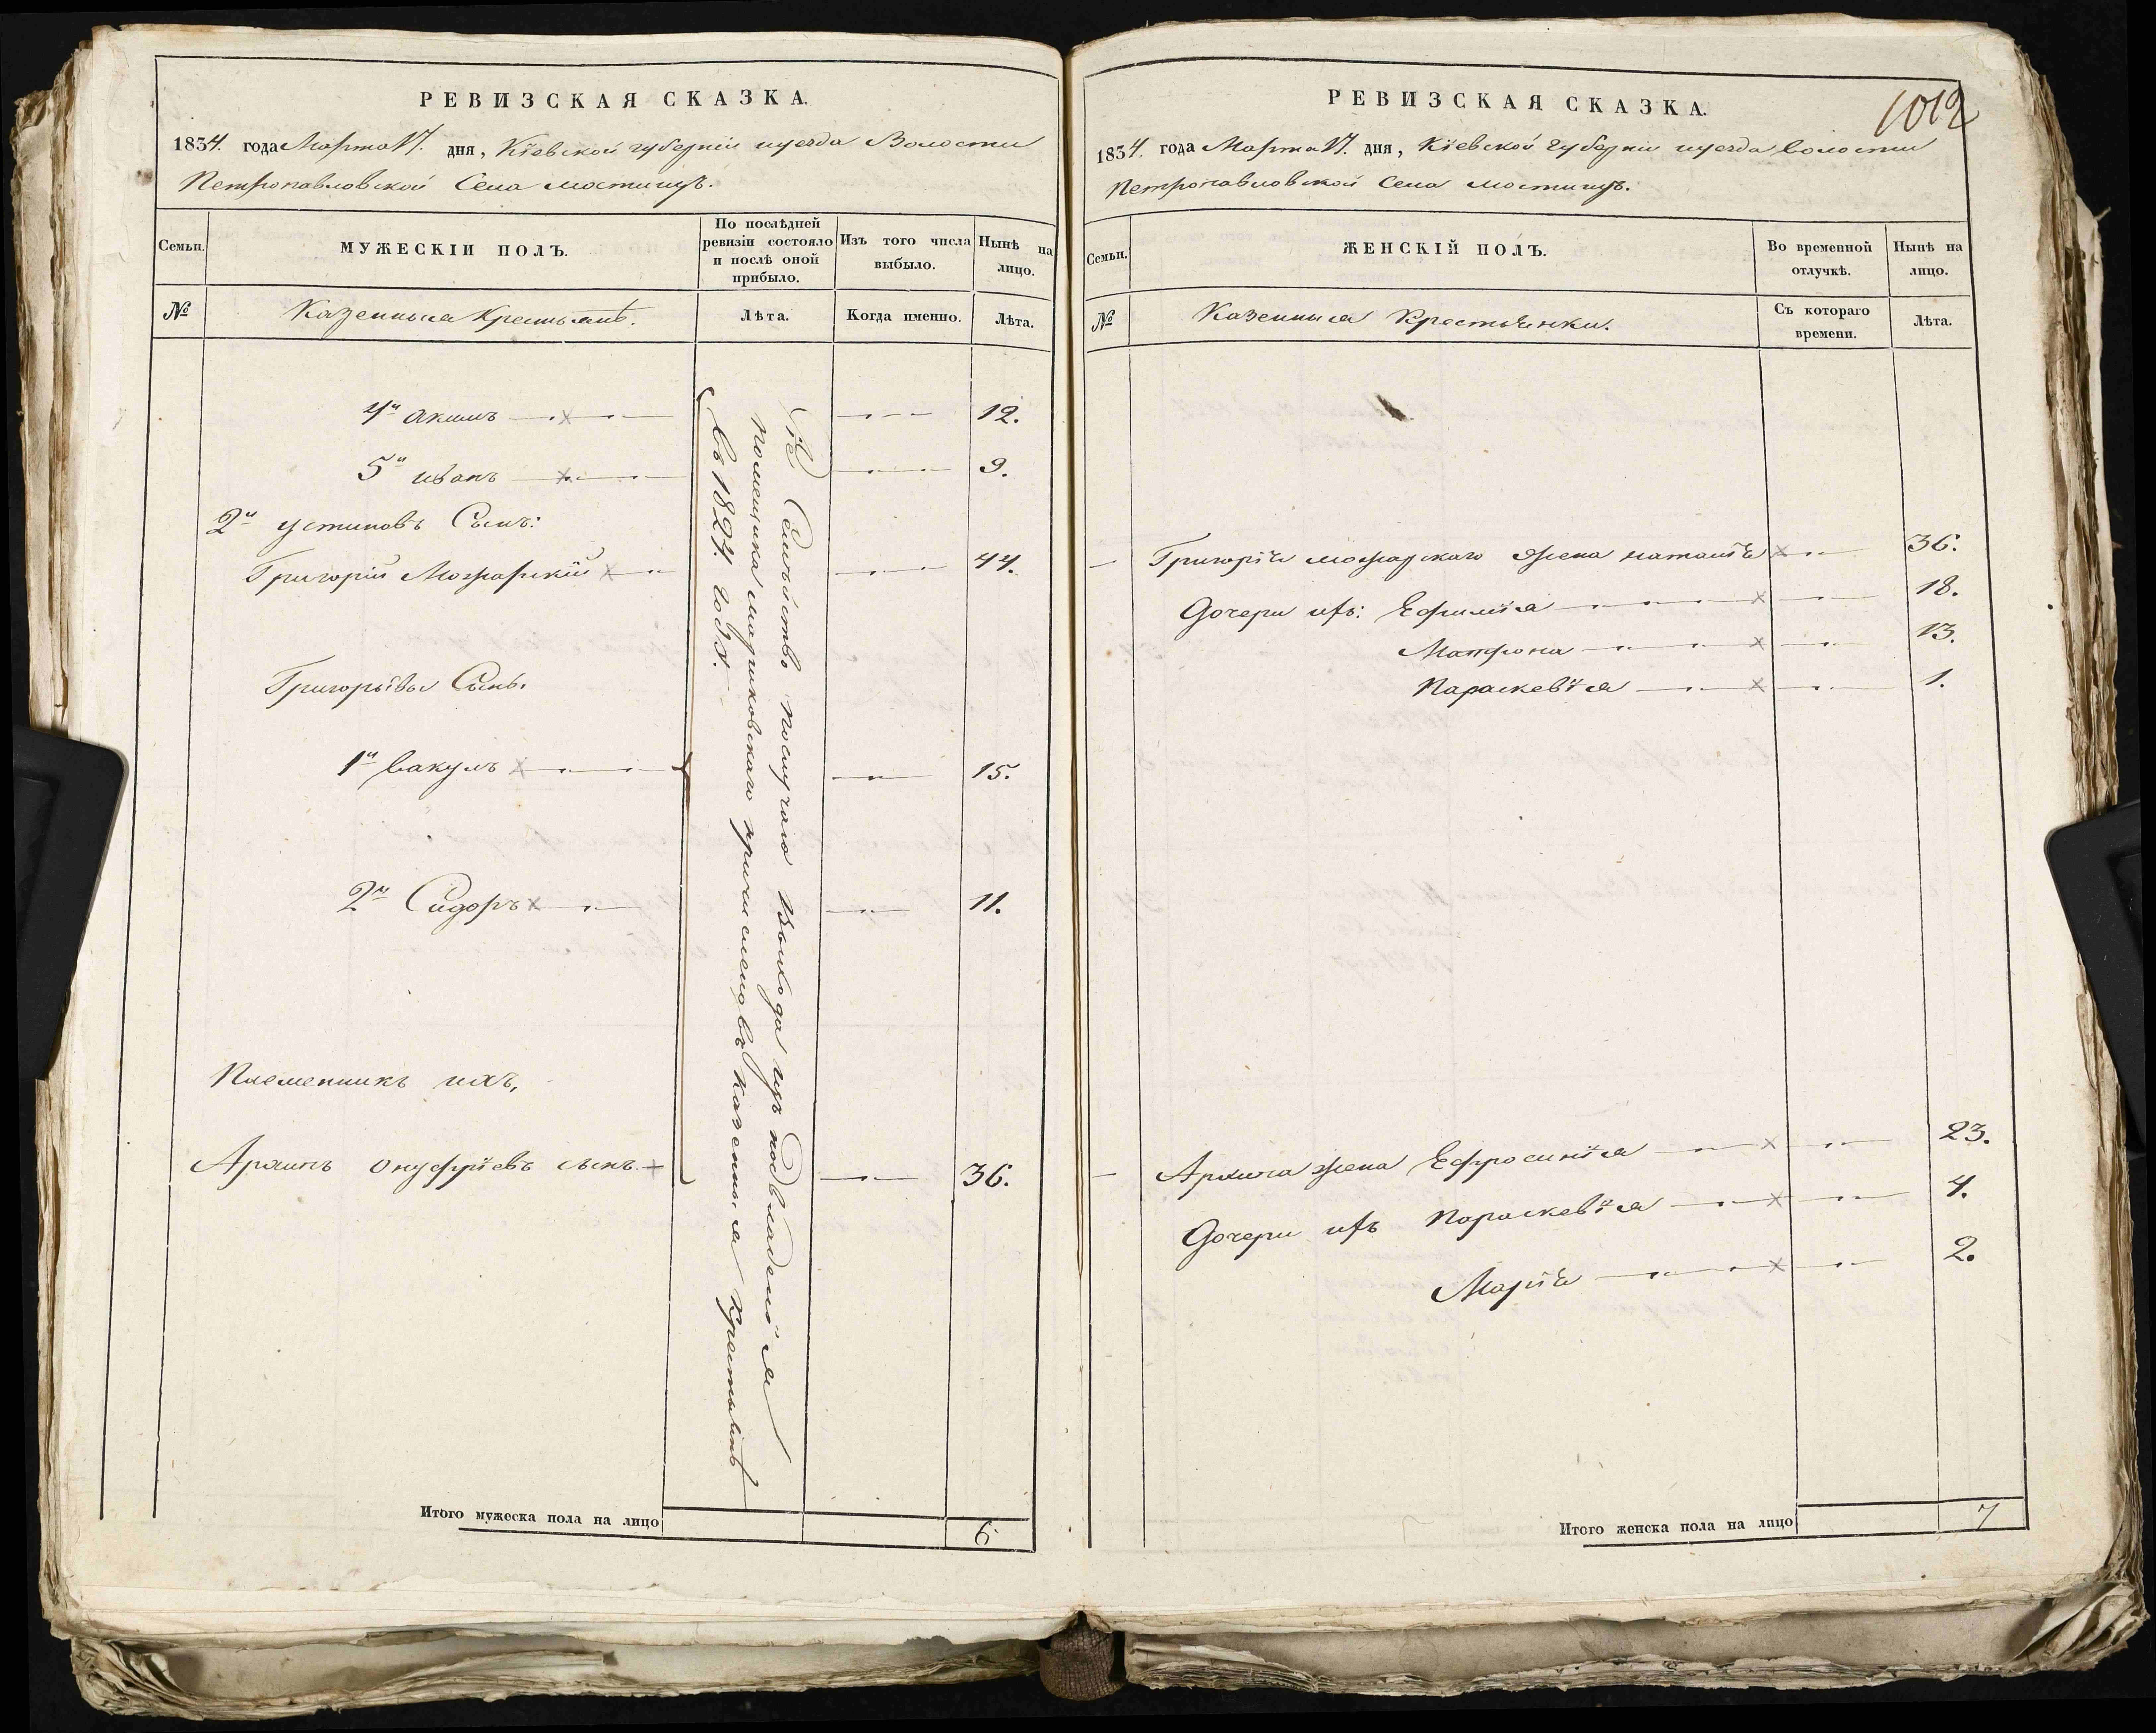 РЕВИЗСКАЯ СКАЗКА.
1834. года Марта 17. дня, Кіевской губерніи иуезда Волости
Петропавловской Села мостищъ.
Семьи.
МУЖЕСКІЙ ПОЛЪ.
По послѣдней ревизіи состояло и послѣ оной прибыло.
Изъ того числа выбыло.
Нынѣ на лицо.
№
Казенныя Крестьянѣ.
Лѣта.
Когда именно.
Лѣта.
4й акимъ 12.
5й иванъ 9.
2й устиновъ Сынъ:
Григорій Можарскій 44.
Григорьевы Сынъ.
1й вакулъ 15.
2й Сидоръ 11.
Племенникъ ихъ,
Архипъ онуфріевъ сынъ 36.
Сѣ Семѣйство послучаю Выйвода изъ под владенія
помещика причисленовъ казенныя Крестьянѣ
въ 1827. годѣ.
Итого мужеска пола на лицо 6.
РЕВИЗСКАЯ СКАЗКА.
1012
1834. года Марта 17. дня, Кіевской губерніи иуезда волости
Петропавловской Села мостищъ.
Семьи.
ЖЕНСКІЙ ПОЛЪ.
Во временной отлучкѣ.
Нынѣ на лицо.
№
Казенныя Крестьянки.
Съ котораго времени.
Лѣта.
Григорія можарскаго жена наталія 36.
Дочери ихъ: Ефимія 18.
Матрона 13.
Параскевія 1.
Архипа жена Ефросинія 23.
Дочери ихъ Параскевія 4.
Марія 2.
Итого женска пола на лицо 7